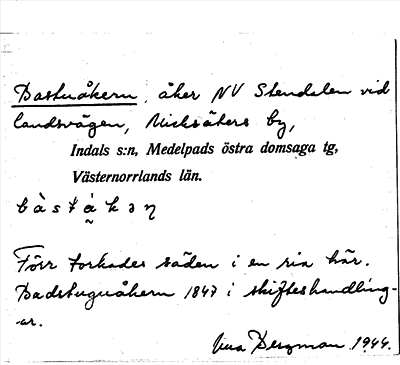 Bastuåkern, åker NV Stendalen vid
landsvägen, Nicksåkers by,
Indals s:n, Medelpads östra domsaga tg,
Västernorrlands län.
Förr torkades säden i en ria här.
Badstuguåkern 1847 i skifteshandling-
ar.
Bergman 1944.